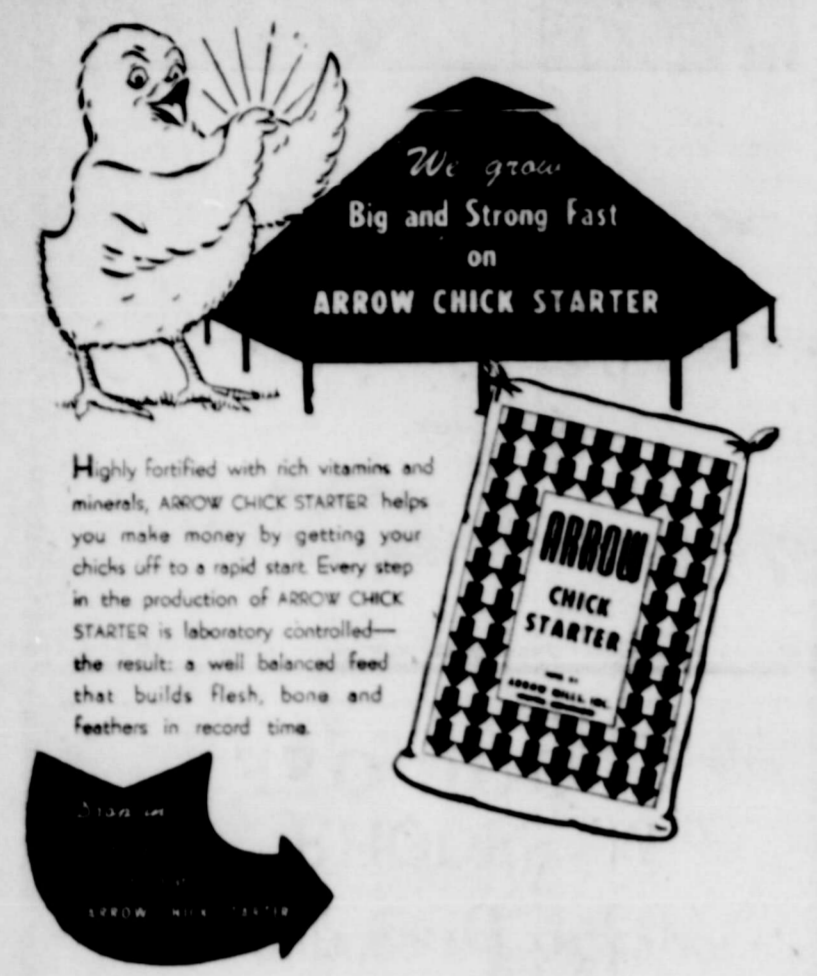 We grow
Big and Strong Fast
on
ARROW CHICK STARTER
Highly fortified with rich vitamins and
minerals, ARROW CHICK STARTER helps
you make money by getting your
chicks off to a rapid start. Every step
in the production of ARROW CHICK
STARTER is laboratory controlled—
the result: a well balanced feed
that builds flesh, bone and
feathers in record time.
ARROW
CHICK
STARTER
ARROW MILLS, INC.
ARROW CHICK STARTER